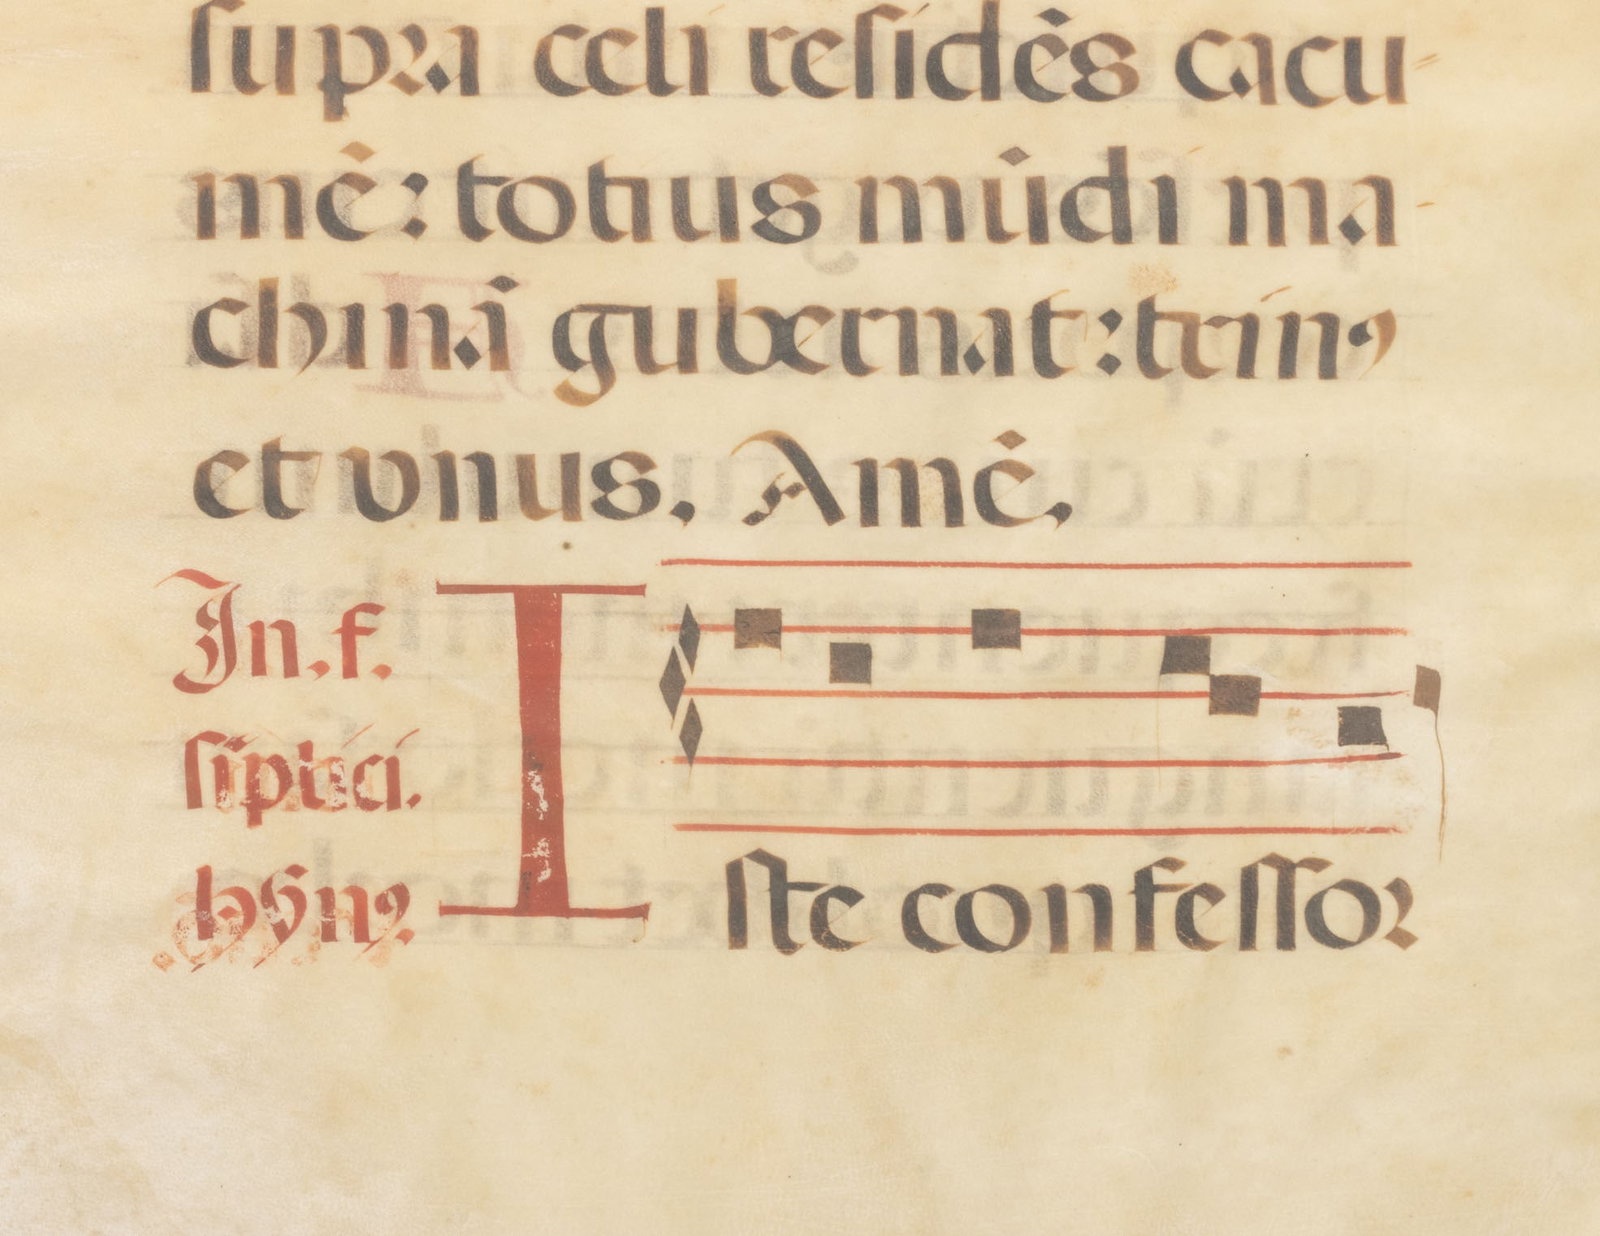 supra celi residēs cacu-
mē: totius mūdi ma-
chinā gubernat: trinꝰ
et vnus. Amē.
In. f.
siplici.
hỹnꝰ.
Iste confessor